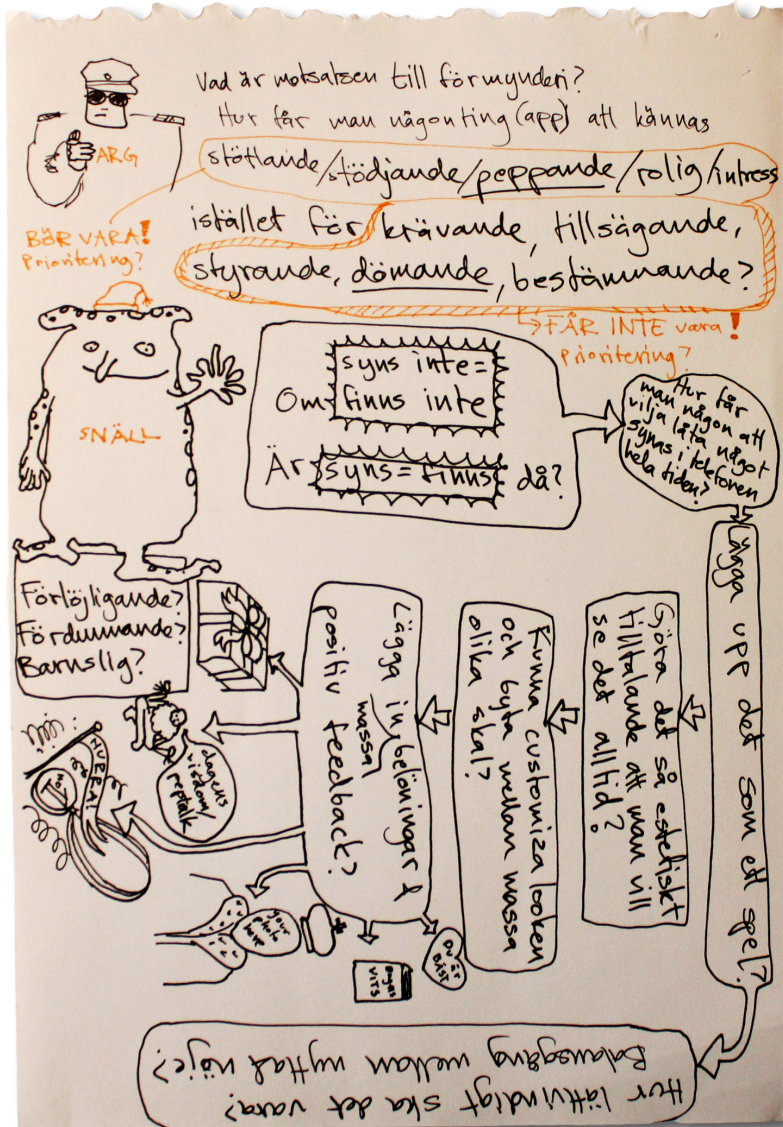 Vad är motsatsen till förmynderi?
Hur får man någonting (app) att kännas
stöttande/stödjande/peppande/rolig/intress
istället för krävande, tillsägande,
styrande, dömande, bestämmande?
ARG
BÖR VARA!
Prioritering?
FÅR INTE vara!
prioritering?
SNÄLL
Om syns inte =
finns inte
Är syns = finns då?
Hur får
man någon att
vilja låta något
synas i telefonen
hela tiden?
Lägga upp det som ett spel?
Göra det så estetiskt
tilltalande att man vill
se det alltid?
Kunna customiza looken
och byta mellan massa
olika skal?
Lägga in belöningar &
massa
positiv feedback?
Förlöjligande?
Fördummande?
Barnslig?
dagens
visdom/
peptalk
HURRA!
your
photo
here
Dagens
VITS
DU ÄR
BÄST
Hur lättvindigt ska det vara?
Balansgång mellan nytta & nöje?